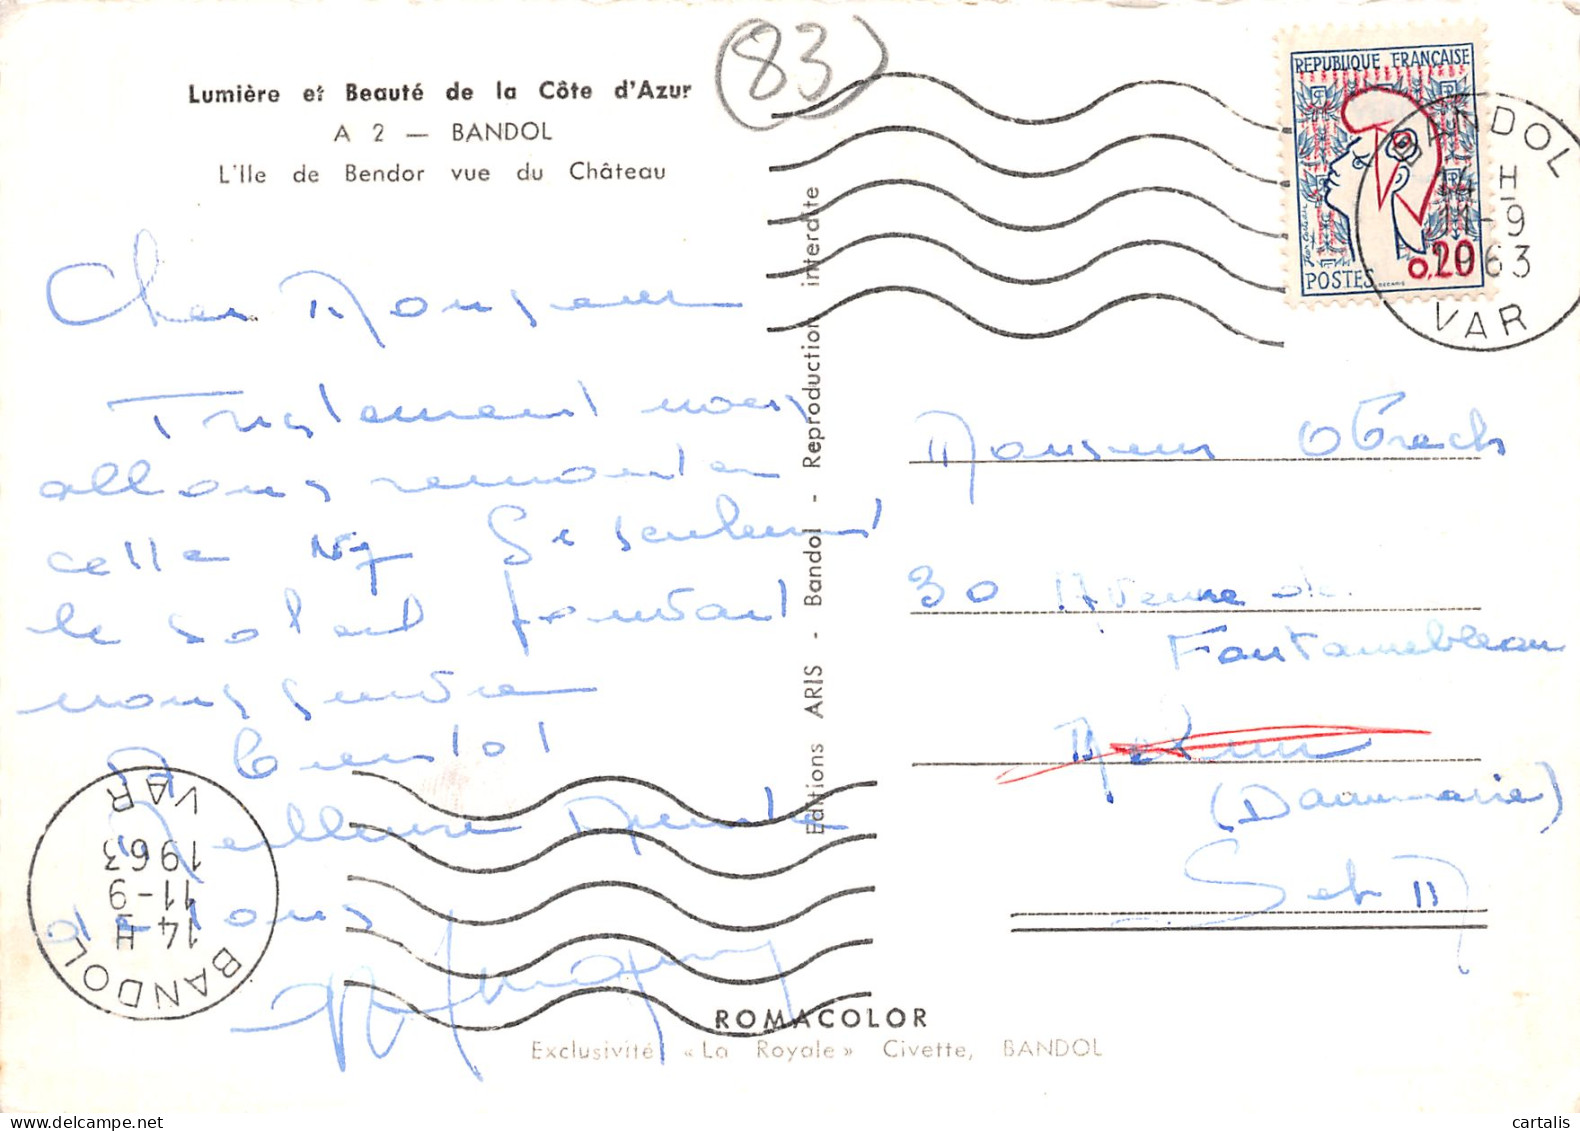 Lumière et Beauté de la Côte d'Azur
A 2 — BANDOL
L'Ile de Bendor vue du Château
83
REPUBLIQUE FRANÇAISE
0,20
POSTES
BANDOL
14 H
11-9
1963
VAR
Cher Monsieur
Tristement nous
allons remonter
cette
Si seulement
le soleil pouvait
nous suivre
A bientot
Meilleures Amitiés
à tous
Editions ARIS - Bandol - Reproduction interdite
Monsieur
30 Avenue de
Fontainebleau
Melun
(Dammarie)
Set M
BANDOL
14 H
11-9
1963
VAR
ROMACOLOR
Exclusivité «La Royale» Civette, BANDOL
cartalis